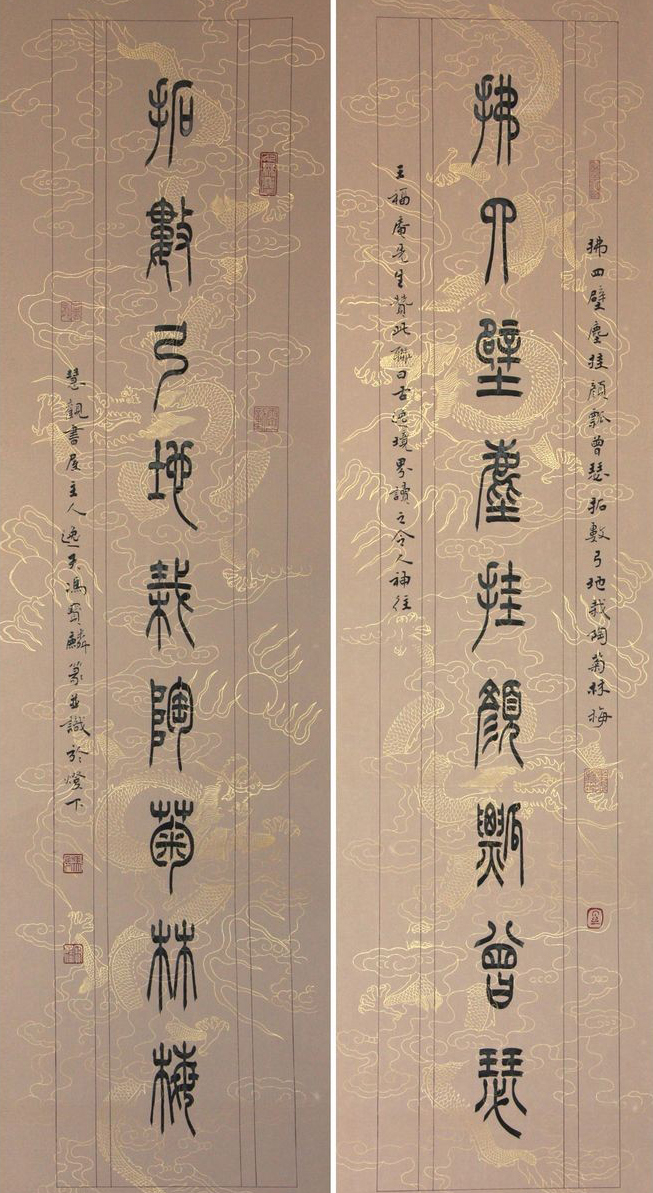 拂四壁塵挂顏瓢曾瑟拓數弓地栽陶菊林梅
拂四壁塵挂顏瓢曾瑟
王福庵先生贊此聯曰古逸境界讀之令人神往
拓數弓地栽陶菊林梅
慧觀書屋主人逸夫馮寶麟篆並識於燈下